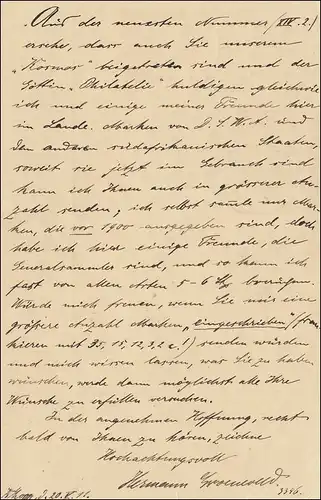 Aus der neuesten Nummer (XIV. 2.)
ersehe, dass auch Sie unserem
„Kosmos" beigetreten sind und der
Göttin „Philatelie" huldigen gleichwie
ich und einige meiner Freunde hier
im Lande. Marken von D. S. W. A. und
den anderen südafrikanischen Staaten,
soweit sie jetzt im Gebrauch sind
kann ich Ihnen auch in grösserer An-
zahl senden; ich selbst samle nur Mar-
ken, die vor 1900 ausgegeben sind, doch
habe ich hier einige Freunde, die
Generalsammler sind, und so kann ich
fast von allen Arten 5-6 brauchen.
Würde mich freuen, wenn Sie mir eine
größere Anzahl Marken „eingeschrieben" (fran-
kieren mit 35, 15, 12, 3, 2 c.!) senden würden
und mich wissen lassen, was Sie zu haben
wünschen, werde dann möglichst alle Ihre
Wünsche zu erfüllen versuchen.
In der angenehmen Hoffnung, recht
bald von Ihnen zu hören, zeichne
Hochachtungsvoll
Hermann
20. V. 11.
3386.